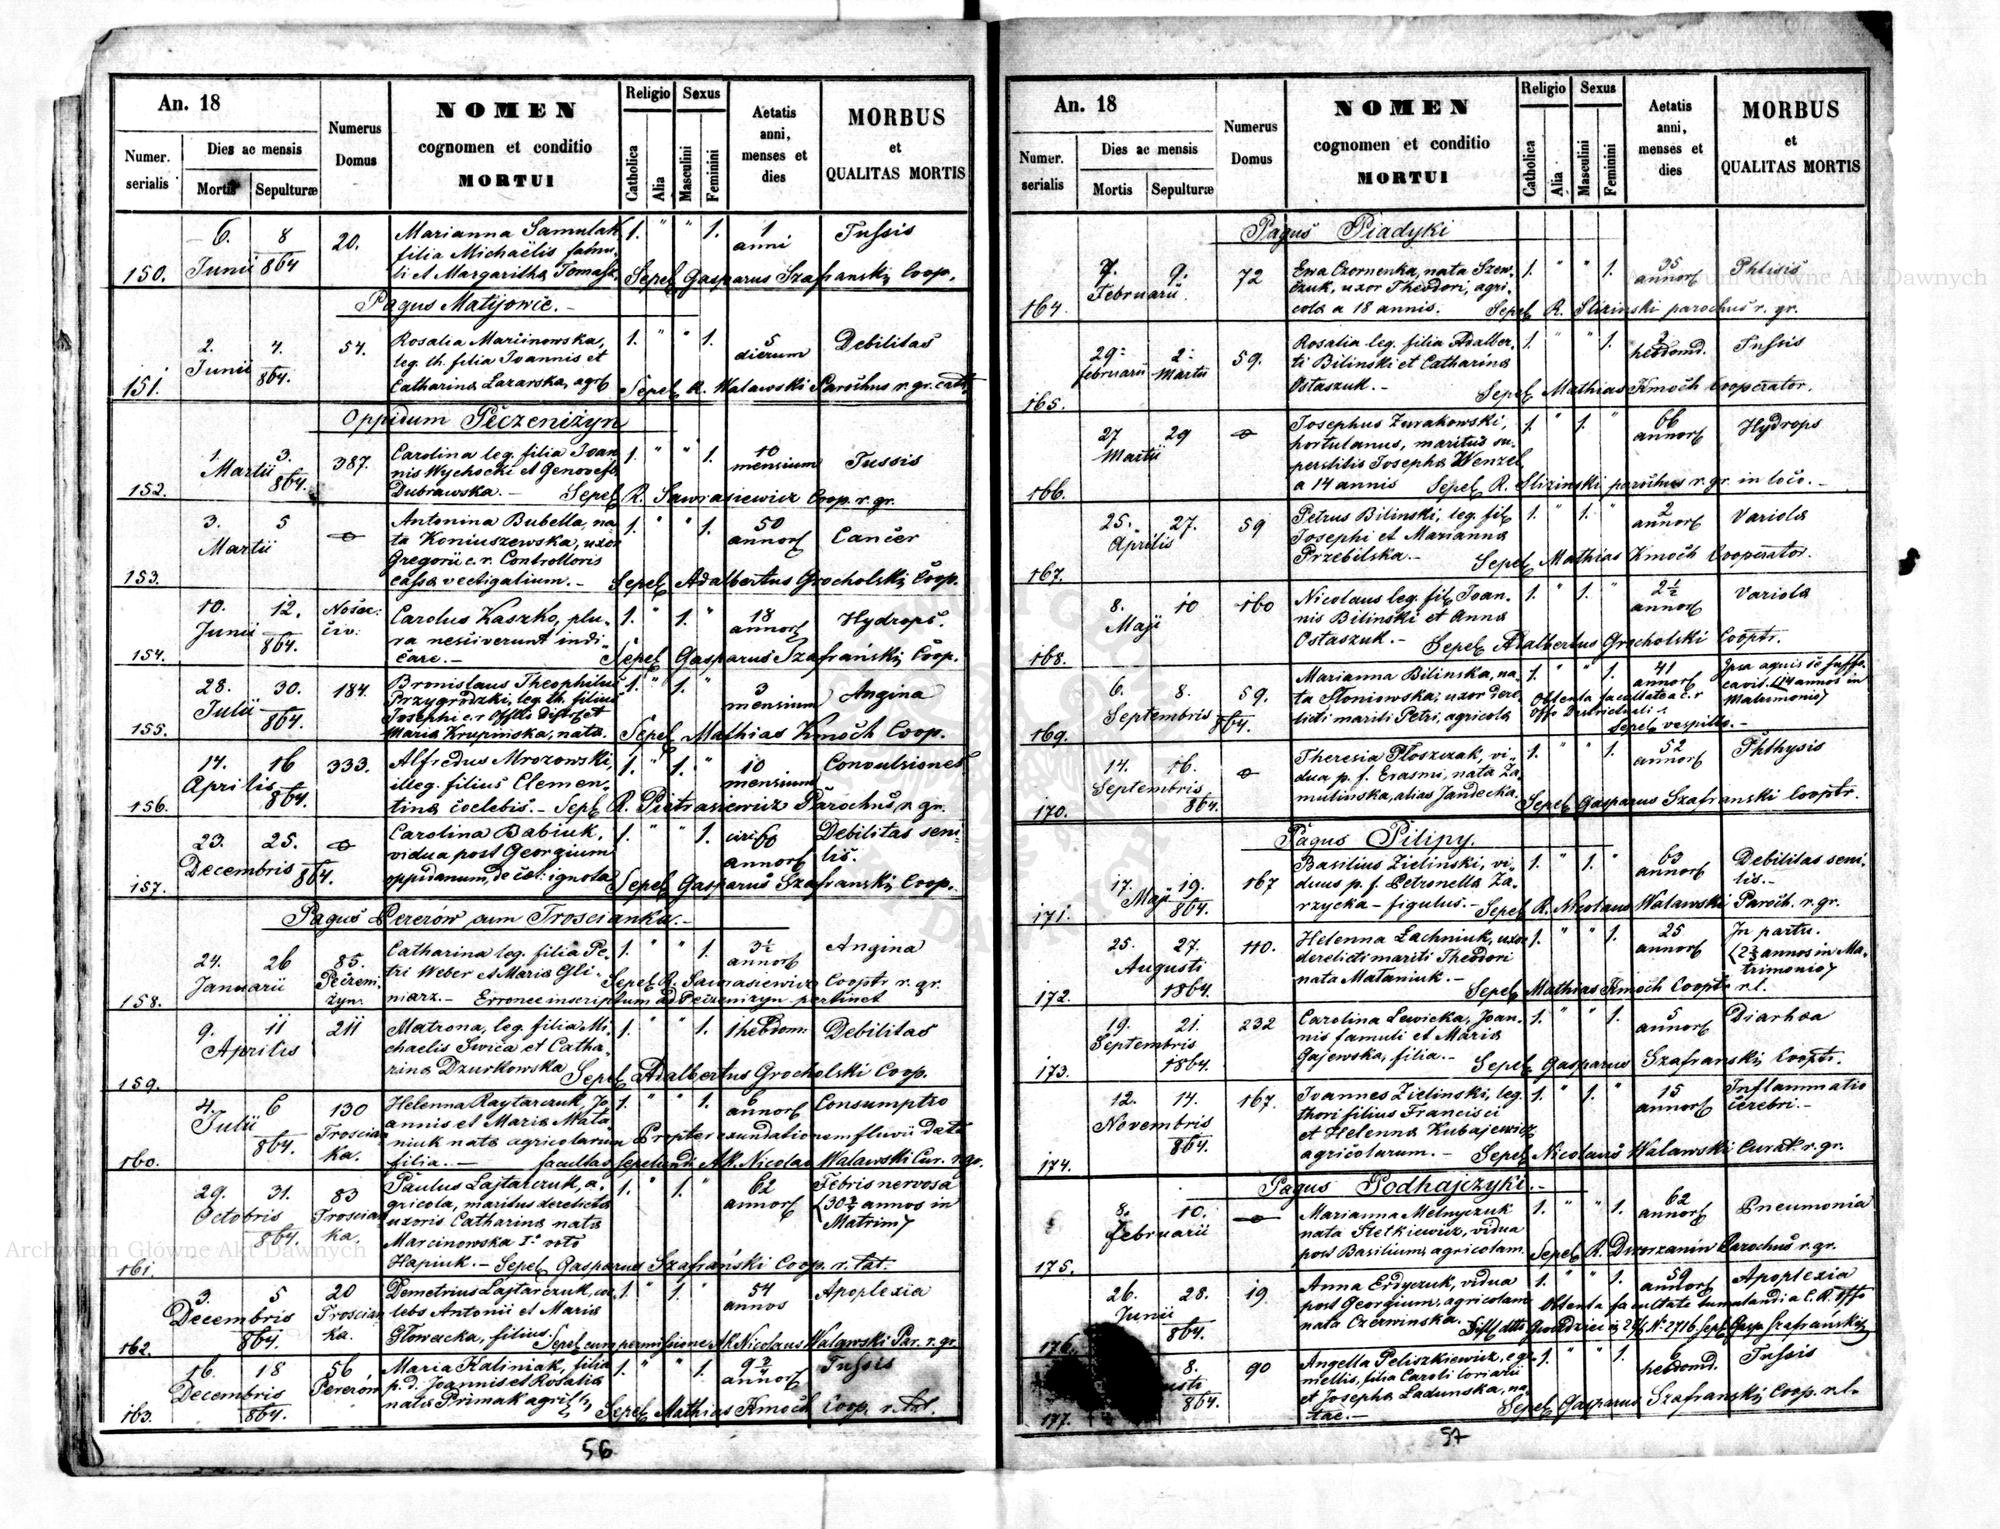 An. 18
Numer. serialis
Dies ac mensis
Mortis
Sepulturæ
Numerus Domus
NOMEN
cognomen et conditio
MORTUI
Religio
Catholica
Alia
Sexus
Masculini
Feminini
Aetatis anni, menses et dies
MORBUS
et
QUALITAS MORTIS
150. 6. Junii 8 864 20. Marianna Samulak 1. " " 1. 1 anni Tussis
filia Michaëlis famu-
li et Margaritha Tomasz. Sepel. Gasparus Szafranski Coop.
Pagus Matijowce.
151. 2. Junii 4. 864. 54. Rosalia Marcinowska, 1. " " 1. 5 dierum Debilitas
leg. th. filia Joannis et
Catharina Lazarska, agr. Sepel. R. Walawski Parochus r. gr. cath.
Oppidum Peczeniżyn
152. 1. Martii 3. 864. 387. Carolina leg. filia Joan- 1. " " 1. 10 mensium Tussis
nis Wychocki et Genovefa
Dubrawska. - Sepel. R. Sawrasiewicz Coop. r. gr.
153. 3. Martii 5 Antonina Bubella, na- 1. " " 1. 50 annor. Cancer
ta Koniuszewska, uxor
Gregorii c. r. Controlloris
cassa vectigalium. - Sepel. Adalbertus Grocholski Coop.
154. 10. Junii 12. 864. Carolus Kaszko, plu- 1. " 1. " 18 annor. Hydrops.
ra nesciverunt indi-
care. - Sepel. Gasparus Szafrański Coop.
155. 28. Julii 30. 864. 184. Bronislaus Theophilus 1. " 1. " 3 mensium Angina
Przygrodzki, leg. th. filius
Josephi c. r. et
Maria Krupińska, nata. Sepel. Mathias Kmoch Coop.
156. 14. Aprilis 16 864. 333. Alfredus Mrozowski, 1. " 1. " 10 mensium Convulsiones
illeg. filius Clemen-
tina coelebis. - Sepel. R. Pietrasiewicz Parochus r. gr.
157. 23. Decembris 25. 864. Carolina Babiuk, 1. " " 1. circ. 60 annor. Debilitas seni-
vidua post Georgium lis.
oppidanum, de ignota Sepel. Gasparus Szafranski Coop.
Pagus Pererów cum Troscianka. -
158. 24. Januarii 26 85. Peczeni-zyn. Catharina leg. filia Pe- 1. " " 1. 3½ annor. Angina
tri Weber et Maria Gli- Sepel. R. Sawrasiewicz Cooptr r. gr.
niarz. - Erronee inscriptum ad Peczenizyn pertinet
159. 9. Aprilis 11 211 Matrona, leg. filia Mi- 1. " " 1. 1 hebdom. Debilitas
chaelis Swica et Catha-
rina Dzurkowska Sepel. Adalbertus Grocholski Coop.
160. 4. Julii 6 864. 130 Troscian-ka. Helenna Raytarczuk, Jo- 1. " " 1. 6 annor. Consumptio
annis et Maria Mata-
niuk nata agricolarum Propter exundationem fluvii data
filia. - facultas sepelendi AR. Nicolao Walawski Cur. r. gr.
161. 29. Octobris 31. 864. 83 Troscian-ka. Paulus Lajtarczuk, a- 1. " 1. " 62 annor. Febris nervosa
gricola, maritus derelicta (30 annos in
uxoris Catharina nata Matrim)
Marcinowska Iº voto
Hapiuk. - Sepel. Gasparus Szafrański Coop. r. lat.
162. 3. Decembris 5 864. 20 Troscian-ka. Demetrius Lajtarczuk, coe- 1. " 1. " 54 annos Apoplexia
lebs Antonii et Maria
Głowacka, filius. Sepel. cum permissione AR. Nicolaus Walawski Par. r. gr.
163. 16. Decembris 18 864. 56 Pererów Maria Kaliniak, filia 1. " " 1. annor. Tussis
p. d. Joannis et Rosalia
nata Primak agric. Sepel. Mathias Kmoch Coop. r. lat.
56
An. 18
Numer. serialis
Dies ac mensis
Mortis
Sepulturæ
Numerus Domus
NOMEN
cognomen et conditio
MORTUI
Religio
Catholica
Alia
Sexus
Masculini
Feminini
Aetatis anni, menses et dies
MORBUS
et
QUALITAS MORTIS
Pagus Piadyki
164. 7. Februarii 9. 72 Ewa Czornenka, nata Szew- 1. " " 1. 35 annor. Phtisis
czuk, uxor Theodori, agri-
cola a 18 annis. Sepel. R. Slizinski parochus r. gr.
165. 29. februarii 2. Martii 59. Rosalia leg. filia Adalber- 1. " " 1. 2 hebdomd. Tussis
ti Bilinski et Catharina
Ostaszuk. - Sepel. Mathias Kmoch Cooperator.
166. 27 Martii 29 Josephus Zurakowski, 1. " 1. " 66 annor. Hydrops
hortulanus, maritus su-
perstitis Josepha Wenzel
a 14 annis Sepel. R. Slizinski parochus r. gr. in loco. -
167. 25. Aprilis 27. 59 Petrus Bilinski, leg. fil. 1. " 1. " 2 annor. Variola
Josephi et Marianna
Przebilska. - Sepel. Mathias Kmoch Cooperator.
168. 8. Maji 10 160 Nicolaus leg. fil. Joan- 1. " 1. " 2½ annor. Variola
nis Bilinski et Anna
Ostaszuk. - Sepel. Adalbertus Grocholski Cooptr.
169. 6. Septembris 8. 864. 59. Marianna Bilinska, na- 1. " " 1. 41 annor. Ipsa aquis se suffo-
ta Słoniowska, uxor dere- Obtenta facultate a c. r cavit. (14 annos in
licti mariti Petri, agricola Offo Districtuali Matrimonio)
Sepel. vespillo. -
170. 14. Septembris 16. 864. Theresia Płoszczak, vi- 1. " " 1. 52 annor. Phthysis
dua p. f. Erasmi, nata Za-
mulinska, alias Jandecka. Sepel. Gasparus Szafranski Cooptr.
Pagus Pilipy.
171. 17. Maji 19. 864. 167 Basilius Zielinski, vi- 1. " 1. " 63 annor. Debilitas seni-
duus p. f. Petronella Za- lis. -
rzycka - figulus. - Sepel. R. Nicolaus Walawski Paroch. r. gr.
172. 25. Augusti 27. 1864. 110. Helenna Lachniuk, uxor 1. " " 1. 25 annor. In partu.
derelicti mariti Theodori (2 annos in Ma-
nata Mataniuk - trimonio)
Sepel. Mathias Kmoch Cooptr. r. l.
173. 19. Septembris 21. 1864. 232 Carolina Lewicka, Joan- 1. " " 1. 5 annor. Diarhœa
nis famuli et Maria
Gajewska, filia. - Sepel. Gasparus Szafranski Cooptr.
174. 12. Novembris 14. 864. 167. Joannes Zielinski, leg. 1. " 1. " 15 annor. Inflammatio
thori filius Francisci cerebri. -
et Helenna Kubajewicz
agricolarum. - Sepel. Nicolaus Walawski Curat. r. gr.
Pagus Podhajczyki. -
175. 8. Februarii 10. Marianna Melnyczuk 1. " " 1. 62 annor. Pneumonia
nata Stetkiewicz, vidua
post Basilium, agricolam. Sepel. R. Dworzanin Parochus r. gr.
176. 26. Junii 28. 864. 19. Anna Erdyczuk, vidua 1. " " 1. 59 annor. Apoplexia
post Georgium, agricolam Obtenta facultate tumulandi a C. R. Offo
nata Czerwinska. N. 2716. Sepel. Gasp. Szafranski
177. 8. 864. 90 Angella Peliszkiewicz, ge- 1. " " 1. 6 hebdomd. Tussis
mellis, filia Caroli loriarii
et Josepha Ladunska, na-
tae. - Sepel. Gasparus Szafranski Coop. r. l.
57
Archiwum Główne Akt Dawnych
Archiwum Główne Akt Dawnych